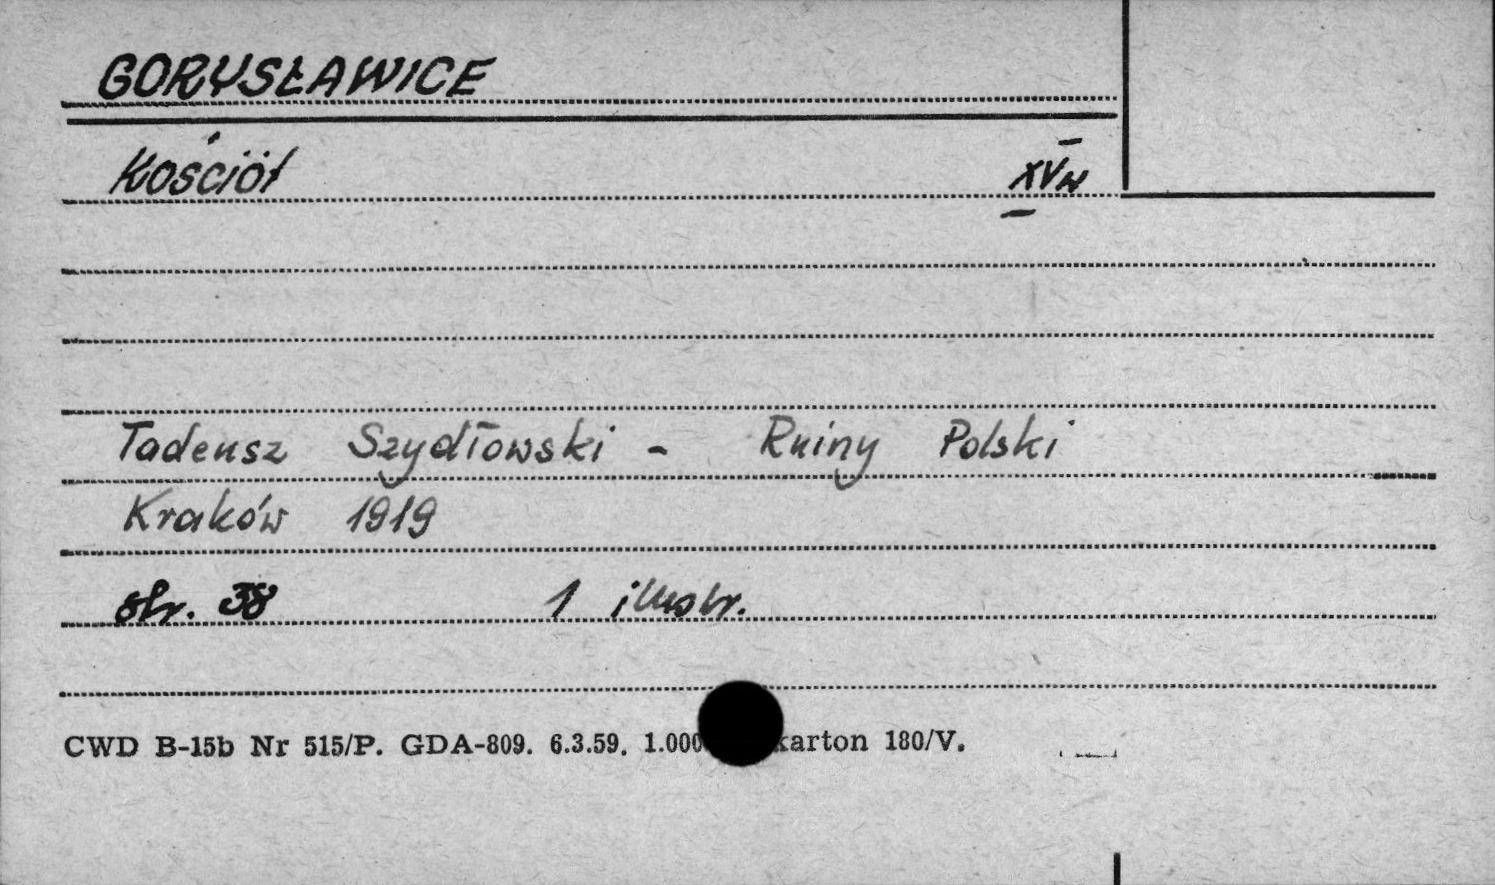 GORYSŁAWICE
Kościół XV w
Tadeusz Szydłowski - Ruiny Polski
Kraków 1919
str. 38 1 illustr.
CWD B-15b Nr 515/P. GDA-809. 6.3.59. 1.000 karton 180/V.